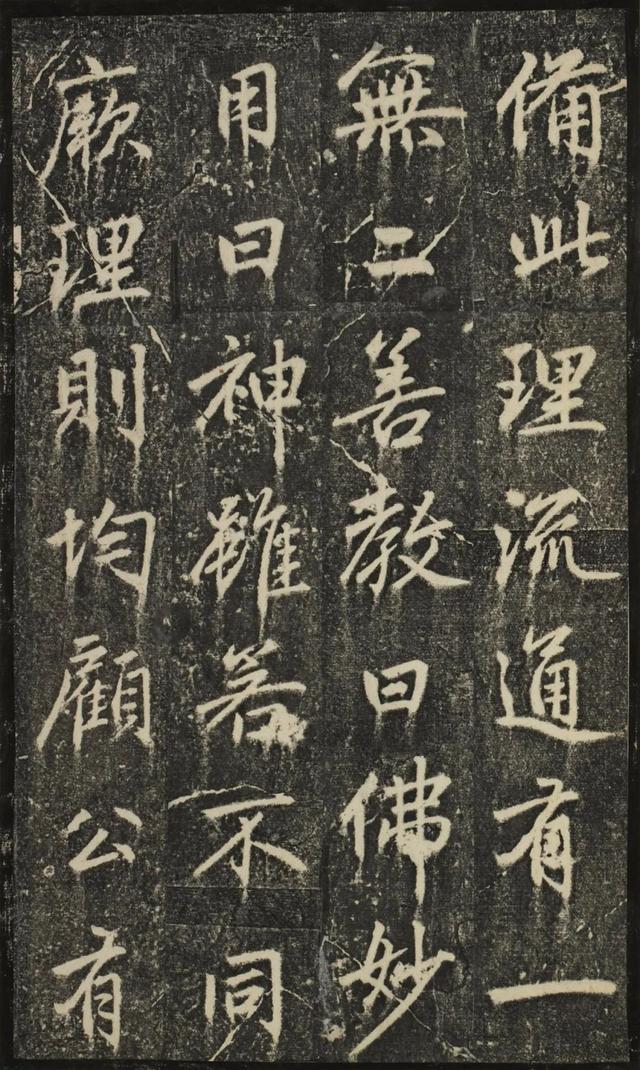 備此理流通有一
無二善教曰佛妙
用曰神雖若不同
厥理則均顧公有